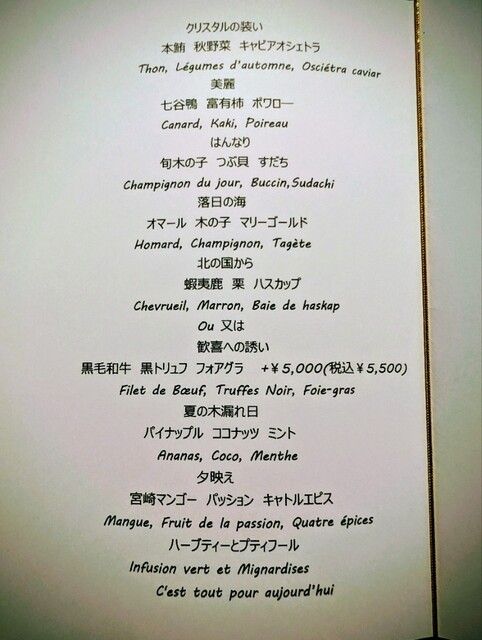 クリスタルの装い
本鮪 秋野菜 キャビアオシェトラ
Thon, Légumes d'automne, Osciétra caviar
美麗
七谷鴨 富有柿 ポワロー
Canard, Kaki, Poireau
はんなり
旬木の子 つぶ貝 すだち
Champignon du jour, Buccin,Sudachi
落日の海
オマール 木の子 マリーゴールド
Homard, Champignon, Tagète
北の国から
蝦夷鹿 栗 ハスカップ
Chevrueil, Marron, Baie de haskap
Ou 又は
歓喜への誘い
黒毛和牛 黒トリュフ フォアグラ +￥5,000(税込￥5,500)
Filet de Bœuf, Truffes Noir, Foie-gras
夏の木漏れ日
パイナップル ココナッツ ミント
Ananas, Coco, Menthe
夕映え
宮崎マンゴー パッション キャトルエピス
Mangue, Fruit de la passion, Quatre épices
ハーブティーとプティフール
Infusion vert et Mignardises
C'est tout pour aujourd'hui